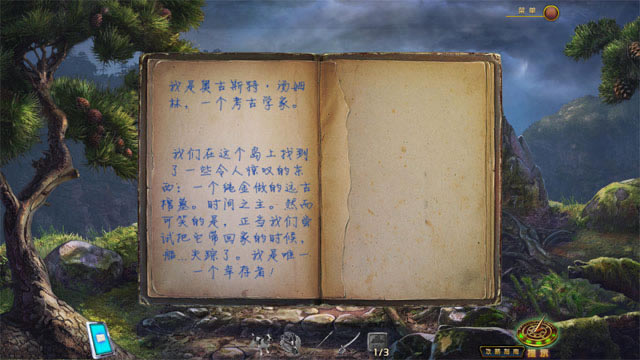 菜单
我是奥古斯特·汤姆
林，一个考古学家。
我们在这个岛上找到
了一些令人惊叹的东
西：一个纯金做的远古
棺墓。时间之主。然而
可笑的是，正当我们尝
试把它带回家的时候，
船...失踪了。我是唯一
一个幸存者！
1/3
攻略指南
提示